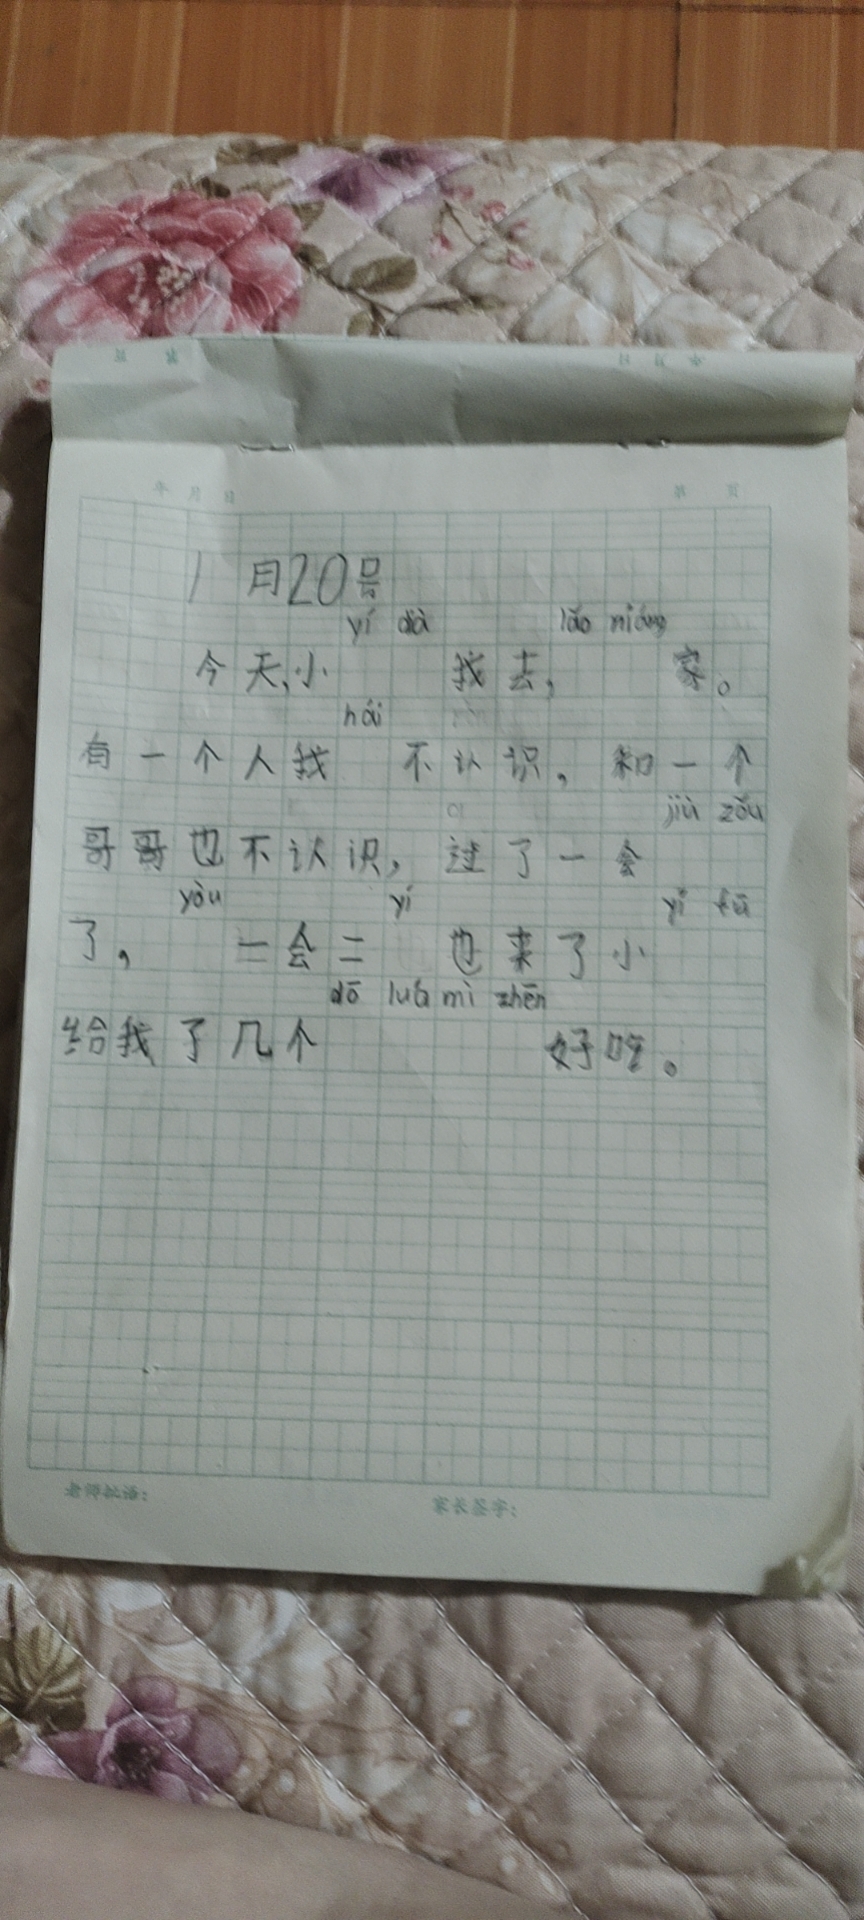 年 月 日 第 页
1月20号
yí dià lǎo niáng
今天,小 找去, 家。
hái
有一个人我 不认识,和一个
jiù zǒu
哥哥也不认识,过了一会
yòu yí yī fū
了, 一会二 也来了小
dō luó mì zhēn
给我了几个 好吃。
老师批语: 家长签字: